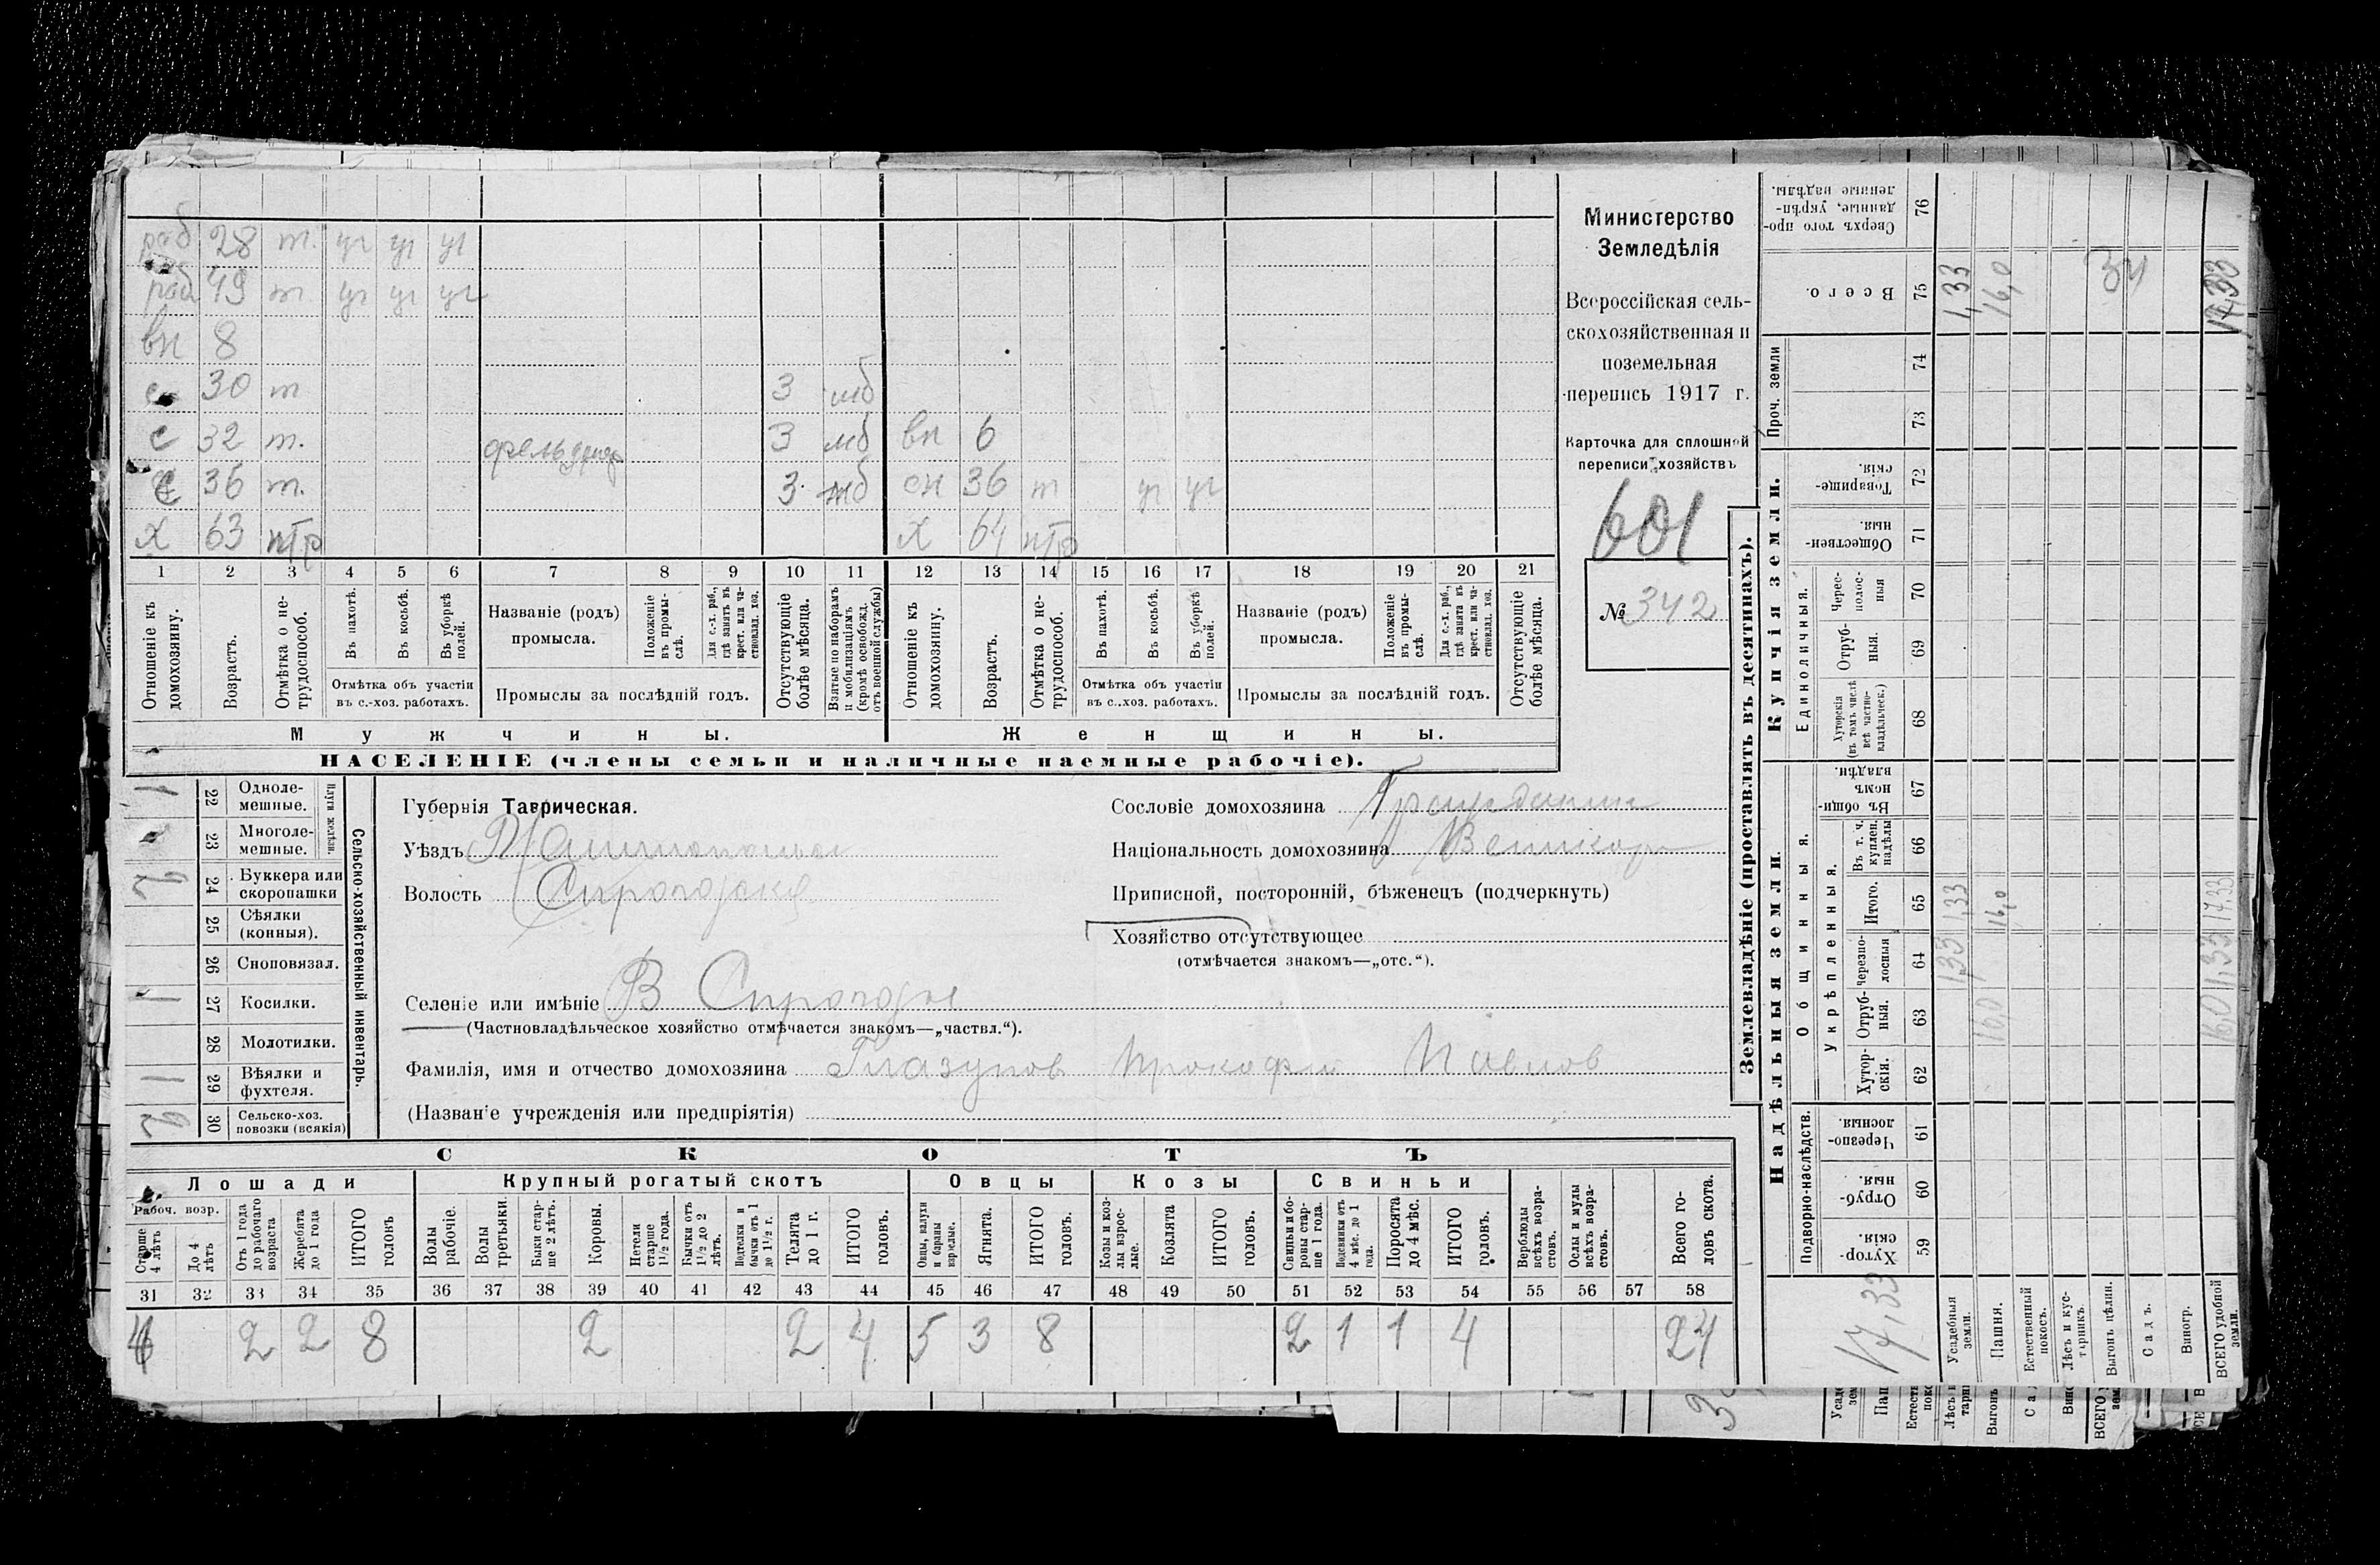 Министерство
Земледѣлія
Всероссійская сель-
скохозяйственная и
поземельная
перепись 1917 г.
Карточка для сплошной
переписи хозяйствъ
601
№ 342
раб 28 т. уч уч уч
раб 49 т уч уч уч
вн 8
с 30 т 3 мб
с 32 т. фельдшер 3 мб вн 6
с 36 т. 3 мб сн 36 т уч уч
х 63 нтр х 64 нтр
1 2 3 4 5 6 7 8 9 10 11 12 13 14 15 16 17 18 19 20 21
Отношеніе къ домохозяину.
Возрастъ.
Отмѣтка о не-трудоспособ.
Въ пахотѣ.
Въ косьбѣ.
Въ уборкѣ полей.
Отмѣтка объ участіи
въ с.-хоз. работахъ.
Названіе (родъ)
промысла.
Положеніе въ промы-слѣ.
Для с.-х. раб., гдѣ занятъ въ крест. или ча-стновлад. хоз.
Промыслы за послѣдній годъ.
Отсутствующіе болѣе мѣсяца.
Взятые по наборамъ и мобилизаціямъ (кромѣ освобожд. отъ военной службы)
Отношеніе къ домохозяину.
Возрастъ.
Отмѣтка о не-трудоспособ.
Въ пахотѣ.
Въ косьбѣ.
Въ уборкѣ полей.
Отмѣтка объ участіи
въ с.-хоз. работахъ.
Названіе (родъ)
промысла.
Положеніе въ промы-слѣ.
Для с.-х. раб., гдѣ занята въ крест. или ча-стновлад. хоз.
Промыслы за послѣдній годъ.
Отсутствующіе болѣе мѣсяца.
Мужчины. Женщины.
НАСЕЛЕНІЕ (члены семьи и наличные наемные рабочіе).
Сельско-хозяйственный инвентарь.
Плуги желѣзн.
1 22 Одноле-мешные.
23 Многоле-мешные.
2 24 Буккера или скоропашки
25 Сѣялки (конныя).
26 Сноповязал.
1 27 Косилки.
28 Молотилки.
1 29 Вѣялки и фухтеля.
2 30 Сельско-хоз. повозки (всякія)
Губернія Таврическая.
Уѣздъ
Волость Сирогозская
Селеніе или имѣніе В Сирогозы
(Частновладѣльческое хозяйство отмѣчается знакомъ—„частвл.“).
Фамилія, имя и отчество домохозяина Глазунов Прокофий Павлов
(Названіе учрежденія или предпріятія)
Сословіе домохозяина Гражданин
Національность домохозяина Великорос
Приписной, посторонній, бѣженецъ (подчеркнуть)
Хозяйство отсутствующее
(отмѣчается знакомъ—„отс.“).
СКОТЪ
Лошади Крупный рогатый скотъ Овцы Козы Свиньи
Рабоч. возр.
Старше 4 лѣтъ
До 4 лѣтъ
Отъ 1 года до рабочаго возраста
Жеребята до 1 года
ИТОГО головъ
Волы рабочіе.
Волы третьяки.
Быки стар-ше 2 лѣтъ.
Коровы.
Нетели старше 1½ года.
Бычки отъ 1½ до 2 лѣтъ.
Подтелки и бычки отъ 1 до 1½ г.
Телята до 1 г.
ИТОГО головъ.
Овцы, валухи и бараны взрослые.
Ягнята.
ИТОГО головъ.
Козы и коз-лы взрос-лые.
Козлята
ИТОГО головъ.
Свиньи и бо-ровы стар-ше 1 года.
Подсвинки отъ 4 мѣс. до 1 года.
Поросята до 4 мѣс.
ИТОГО головъ.
Верблюды всѣхъ возра-стовъ.
Ослы и мулы всѣхъ возра-стовъ.
Всего го-ловъ скота.
31 32 33 34 35 36 37 38 39 40 41 42 43 44 45 46 47 48 49 50 51 52 53 54 55 56 57 58
4 2 2 8 2 2 4 5 3 8 2 1 1 4 24
Землевладѣніе (проставлять въ десятинахъ).
Надѣльныя земли.
Купчія земли.
Проч. земли
Подворно-наслѣдств.
Общинныя.
Укрѣпленныя.
Единоличныя.
Хутор-скія. 59
Отруб-ныя. 60
Черезпо-лосныя. 61
Хутор-скія. 62
Отруб-ныя. 63
Черезпо-лосныя 64
Итого. 65
Въ т. ч. куплен. надѣлы 66
Въ общин-номъ владѣн. 67
Хуторскія (въ томъ числѣ всѣ частно-владѣльческ.) 68
Отруб-ныя. 69
Черес-полос-ныя 70
Обществен-ныя. 71
Товарище-скія. 72
73
74
Всего. 75
Сверхъ того про-данные, укрѣп-ленные надѣлы. 76
17,33
Усадебныя земли. 1,33 1,33 1,33
Пашня. 16,0 16,0 16,0
Естественный покосъ.
Лѣсъ и кус-тарникъ.
Выгонъ цѣлин. 34
Садъ.
Виногр.
ВСЕГО удобной земли. 16,0 1,33 17,33 17,33